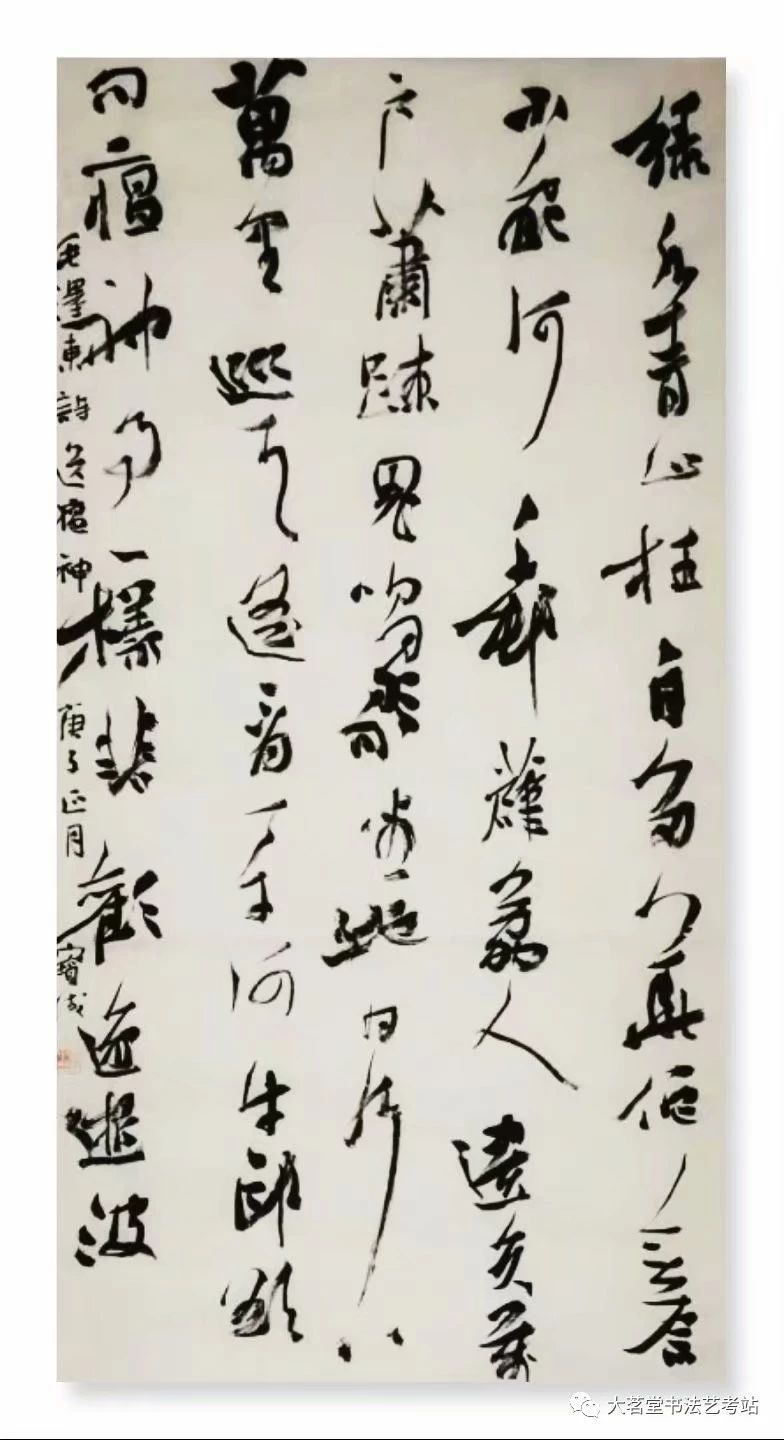 綠水青山枉自多華佗無奈
小蟲何千村薜荔人遺矢萬
戶蕭疏鬼唱歌坐地日行八
萬里巡天遙看一千河牛郎欲
問瘟神事一樣悲歡逐逝波
毛澤東詩送瘟神 庚子正月 寶成
大茗堂书法艺考站